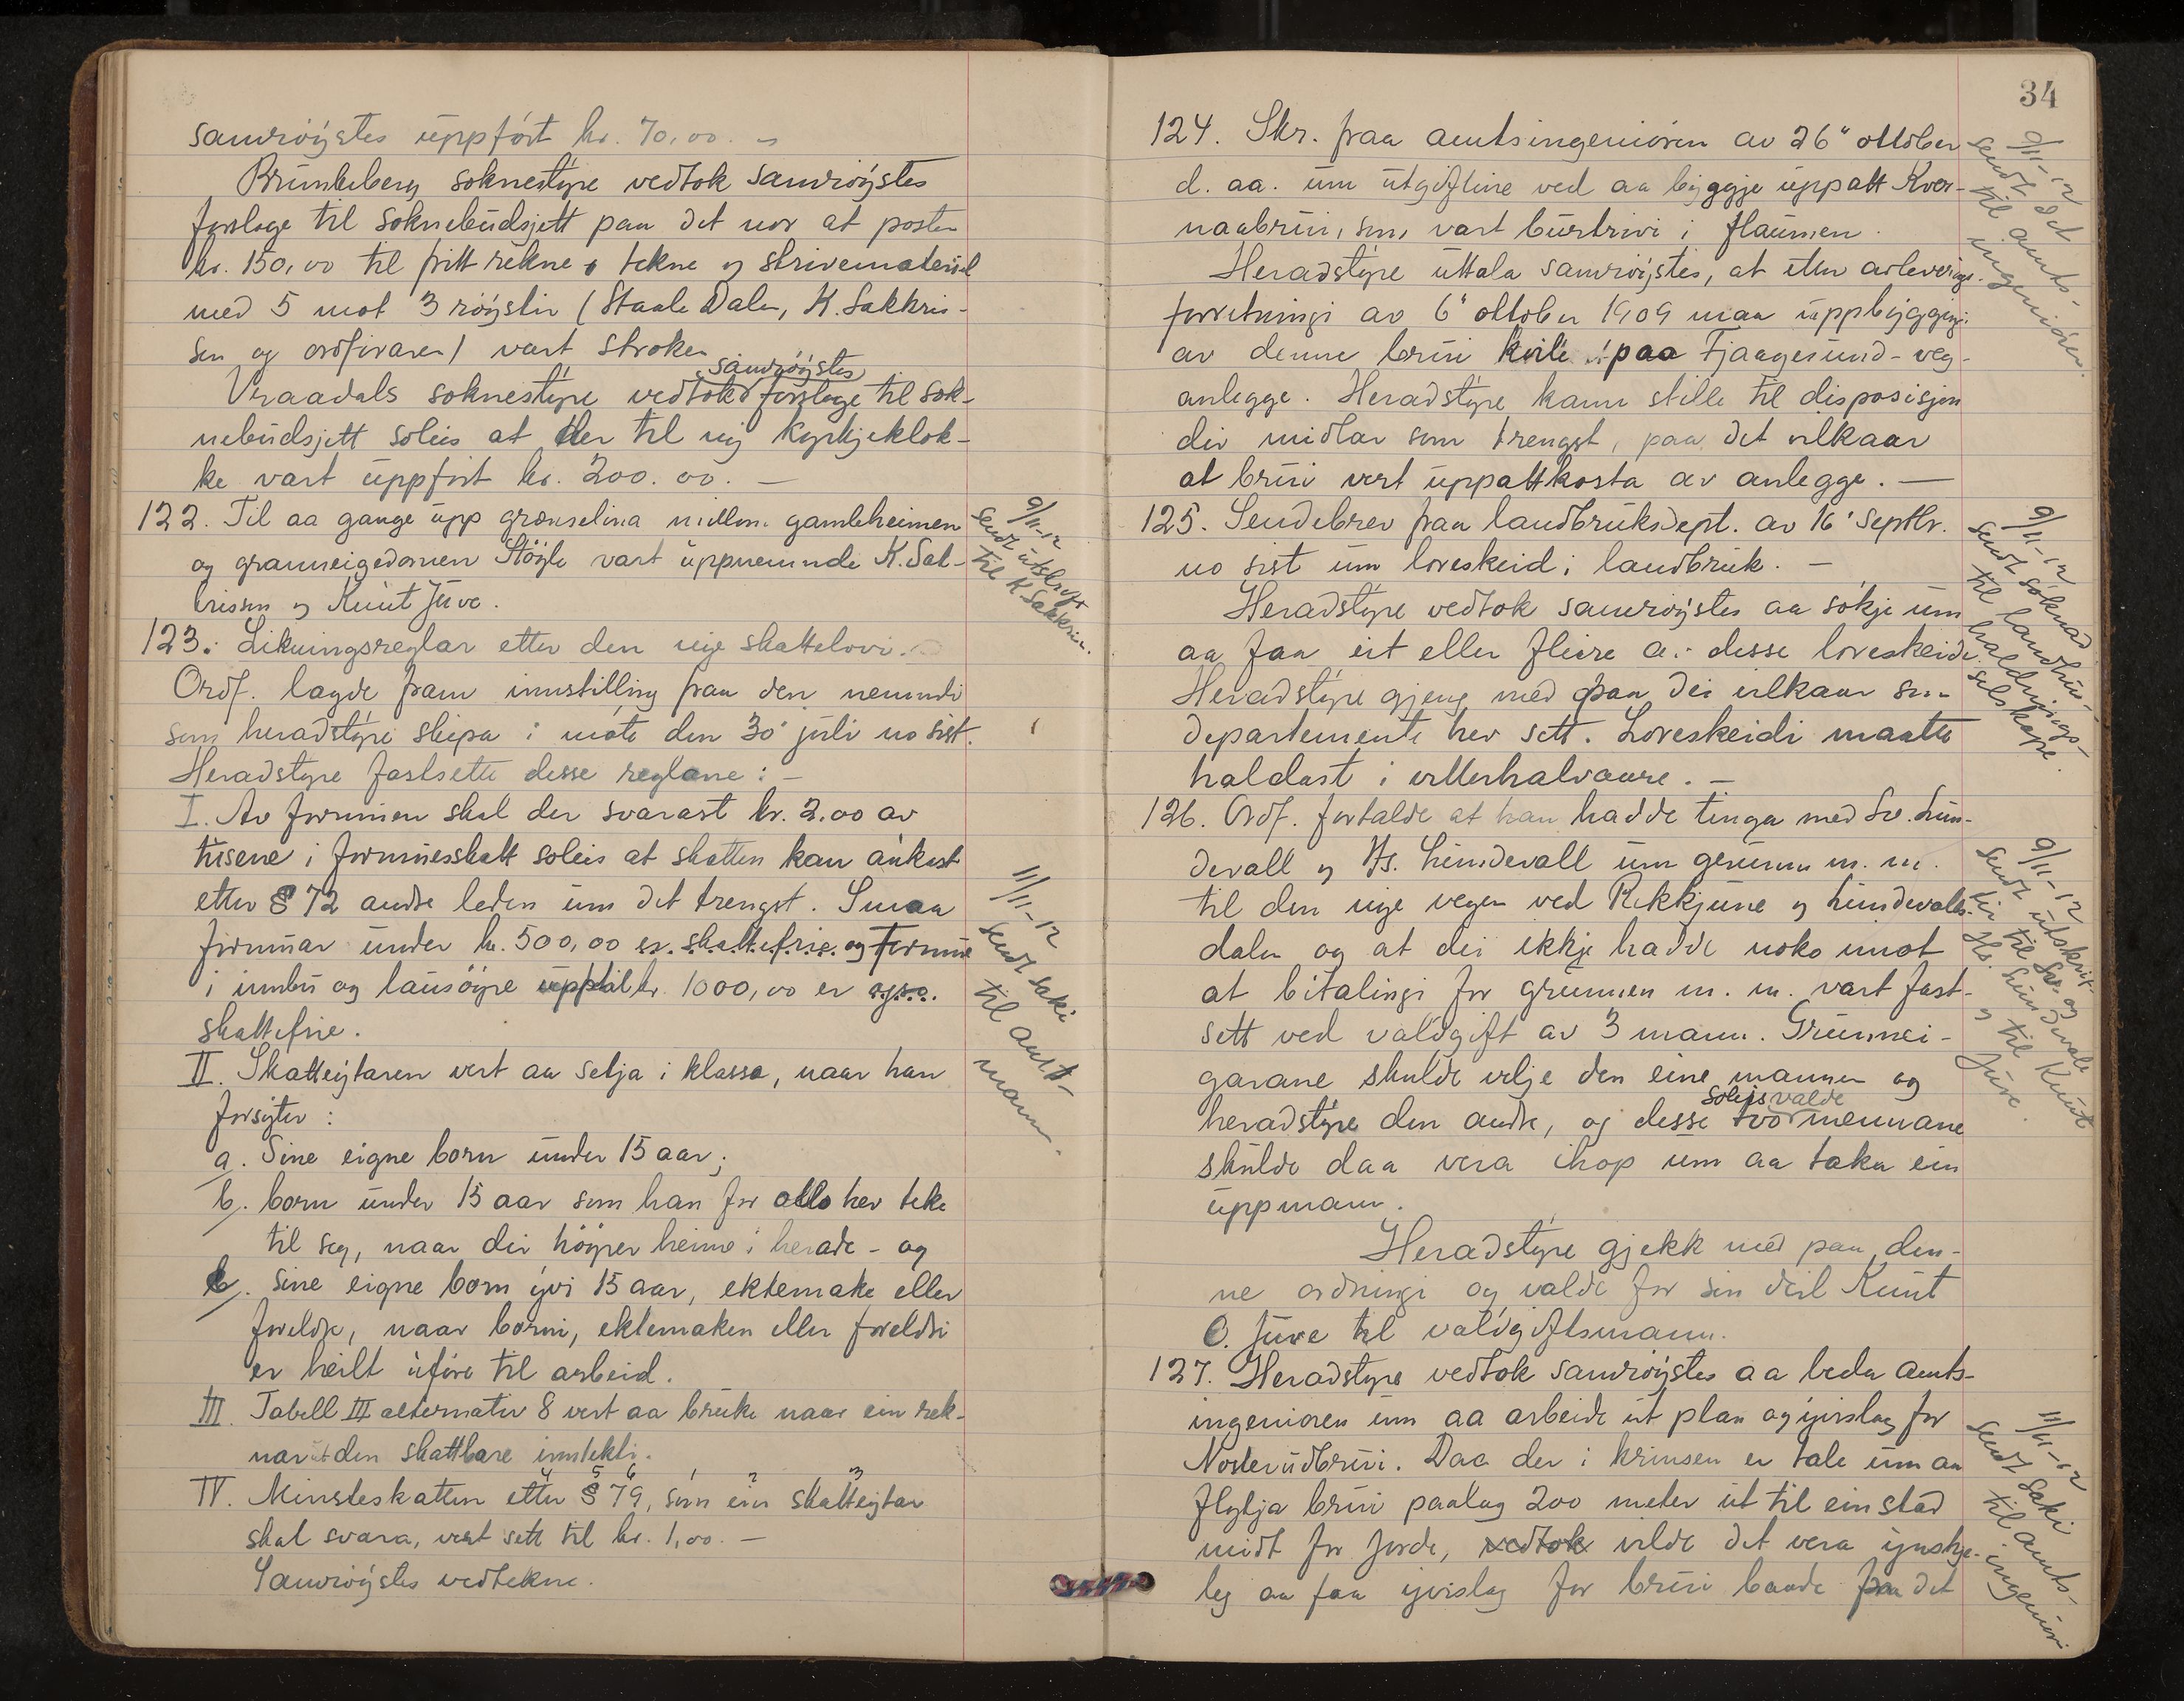 samrøystes uppført kr. 70,00. –
Brunkeberg soknestyre vedtok samrøystes
forslage til soknebudsjett paa det nær at posten
kr. 150,00 til fritt rekne, tekne og skrivemateriel
med 5 mot 3 røyster (Staale Dalen, K. Sakkris-
sen og ordføraren) vart stroken
samrøystes
Vraadals soknestyre vedtok forslage til sok-
nebudsjett soleis at der til ny kyrkjeklok-
ke vart uppført kr. 200.00. –
122. Til aa gange upp grenselina millom gamleheimen
og granneigedomen Støyle vart uppnemnde K. Sak-
krissen og Knut Juve.
9/11-12
Sendt utskrift
til K. Sakkriss.
123. Likningsreglar etter den nye skattelovi.
Ordf. lagde fram innstilling fraa den nemndi
som heradstyre skipa i møte den 30' juli no sist.
Heradstyre fastsette desse reglane: –
I. Av formuen skal der svarast kr. 2.00 av
tusene i formuesskatt soleis at skatten kan aukast
etter § 72 andre leden um det trengst. Smaa
formuar under kr. 500,00 er skattefrie og formue
i innbu og lausøyre upptil kr. 1000,00 er ogso
skattefrie.
II. Skatteytaren vert aa setja i klasse, naar han
forsyter:
a. Sine eigne born under 15 aar;
b. born under 15 aar som han for allo hev teke
til seg, naar dei høyrer heime i herade – og
c. sine eigne born yvi 15 aar, ektemake eller
foreldre, naar borni, ektemaken eller foreldri
er heilt uføre til arbeid.
III. Tabell III alternativ 8 vert aa bruke naar ein rek-
nar ut den skattbare inntekti.
4 5 6 1 2 3
IV. Minsteskatten etter § 79, som ein skatteytar
skal svara, vert sett til kr. 1,00. –
Samrøystes vedtekne.
11/11-12
Sendt saki
til amt-
mann.
34
124. Skr. fraa amtsingeniøren av 26" oktober
d. aa. um utgiftine ved aa byggje uppatt Kver-
naabrui, som vart burtrivi i flaumen.
Heradstyre uttala samrøystes, at etter avleverings-
forretningi av 6" oktober 1909 maa uppbyggjingi
av denne brui kvile paa Fjaagesund-veg-
anlegge. Heradstyre kann stille til disposisjon
dei midlar som trengst, paa det vilkaar
at brui vert uppattkosta av anlegge. –
9/11-12
Sendt det
til amts-
ingeniøren.
125. Sendebrev fraa landbruksdept. av 16' septbr.
no sist um loveskeid i landbruk. –
Heradstyre vedtok samrøystes aa søkje um
aa faa eit eller fleire av desse loveskeidi.
Heradstyre gjeng med paa dei vilkaar som
departemente hev sett. Loveskeidi maatte
haldast i vetterhalvaare. –
9/11-12
Sendt søknad
til landhus-
haldnings-
selskape.
126. Ordf. fortalde at han hadde tinga med Sv. Lun-
devall og Hs. Lundevall um grunn m. m.
til den nye vegen ved Rekkjune og Lundevalls-
dalen og at dei ikkje hadde noko imot
at bitalingi for grunnen m. m. vart fast-
sett ved valdgift av 3 mann. Grunnei-
garane skulde velje den eine mannen og
soleis valde
heradstyre den andre, og desse tvo mennane
skulde daa vera ihop um aa taka ein
uppmann.
Heradstyre gjekk med paa den-
ne ordningi og valde for sin deil Knut
O. Juve til valdgiftsmann.
9/11-12
Sendt utskrift
til Sv. og
Hs. Lundevall
og til Knut
Juve.
127. Heradstyre vedtok samrøystes aa beda amts-
ingeniøren um aa arbeide ut plan og yvirslag for
Nosterudbrui. Daa der i krinsen er tale um aa
flytja brui paalag 200 meter ut til ein stad
midt for Jorde, vedtok vilde det vera ynskje-
leg aa faa yvirslag for brui baade paa det
11/11-12
Sendt saki
til amts-
ingeniøri